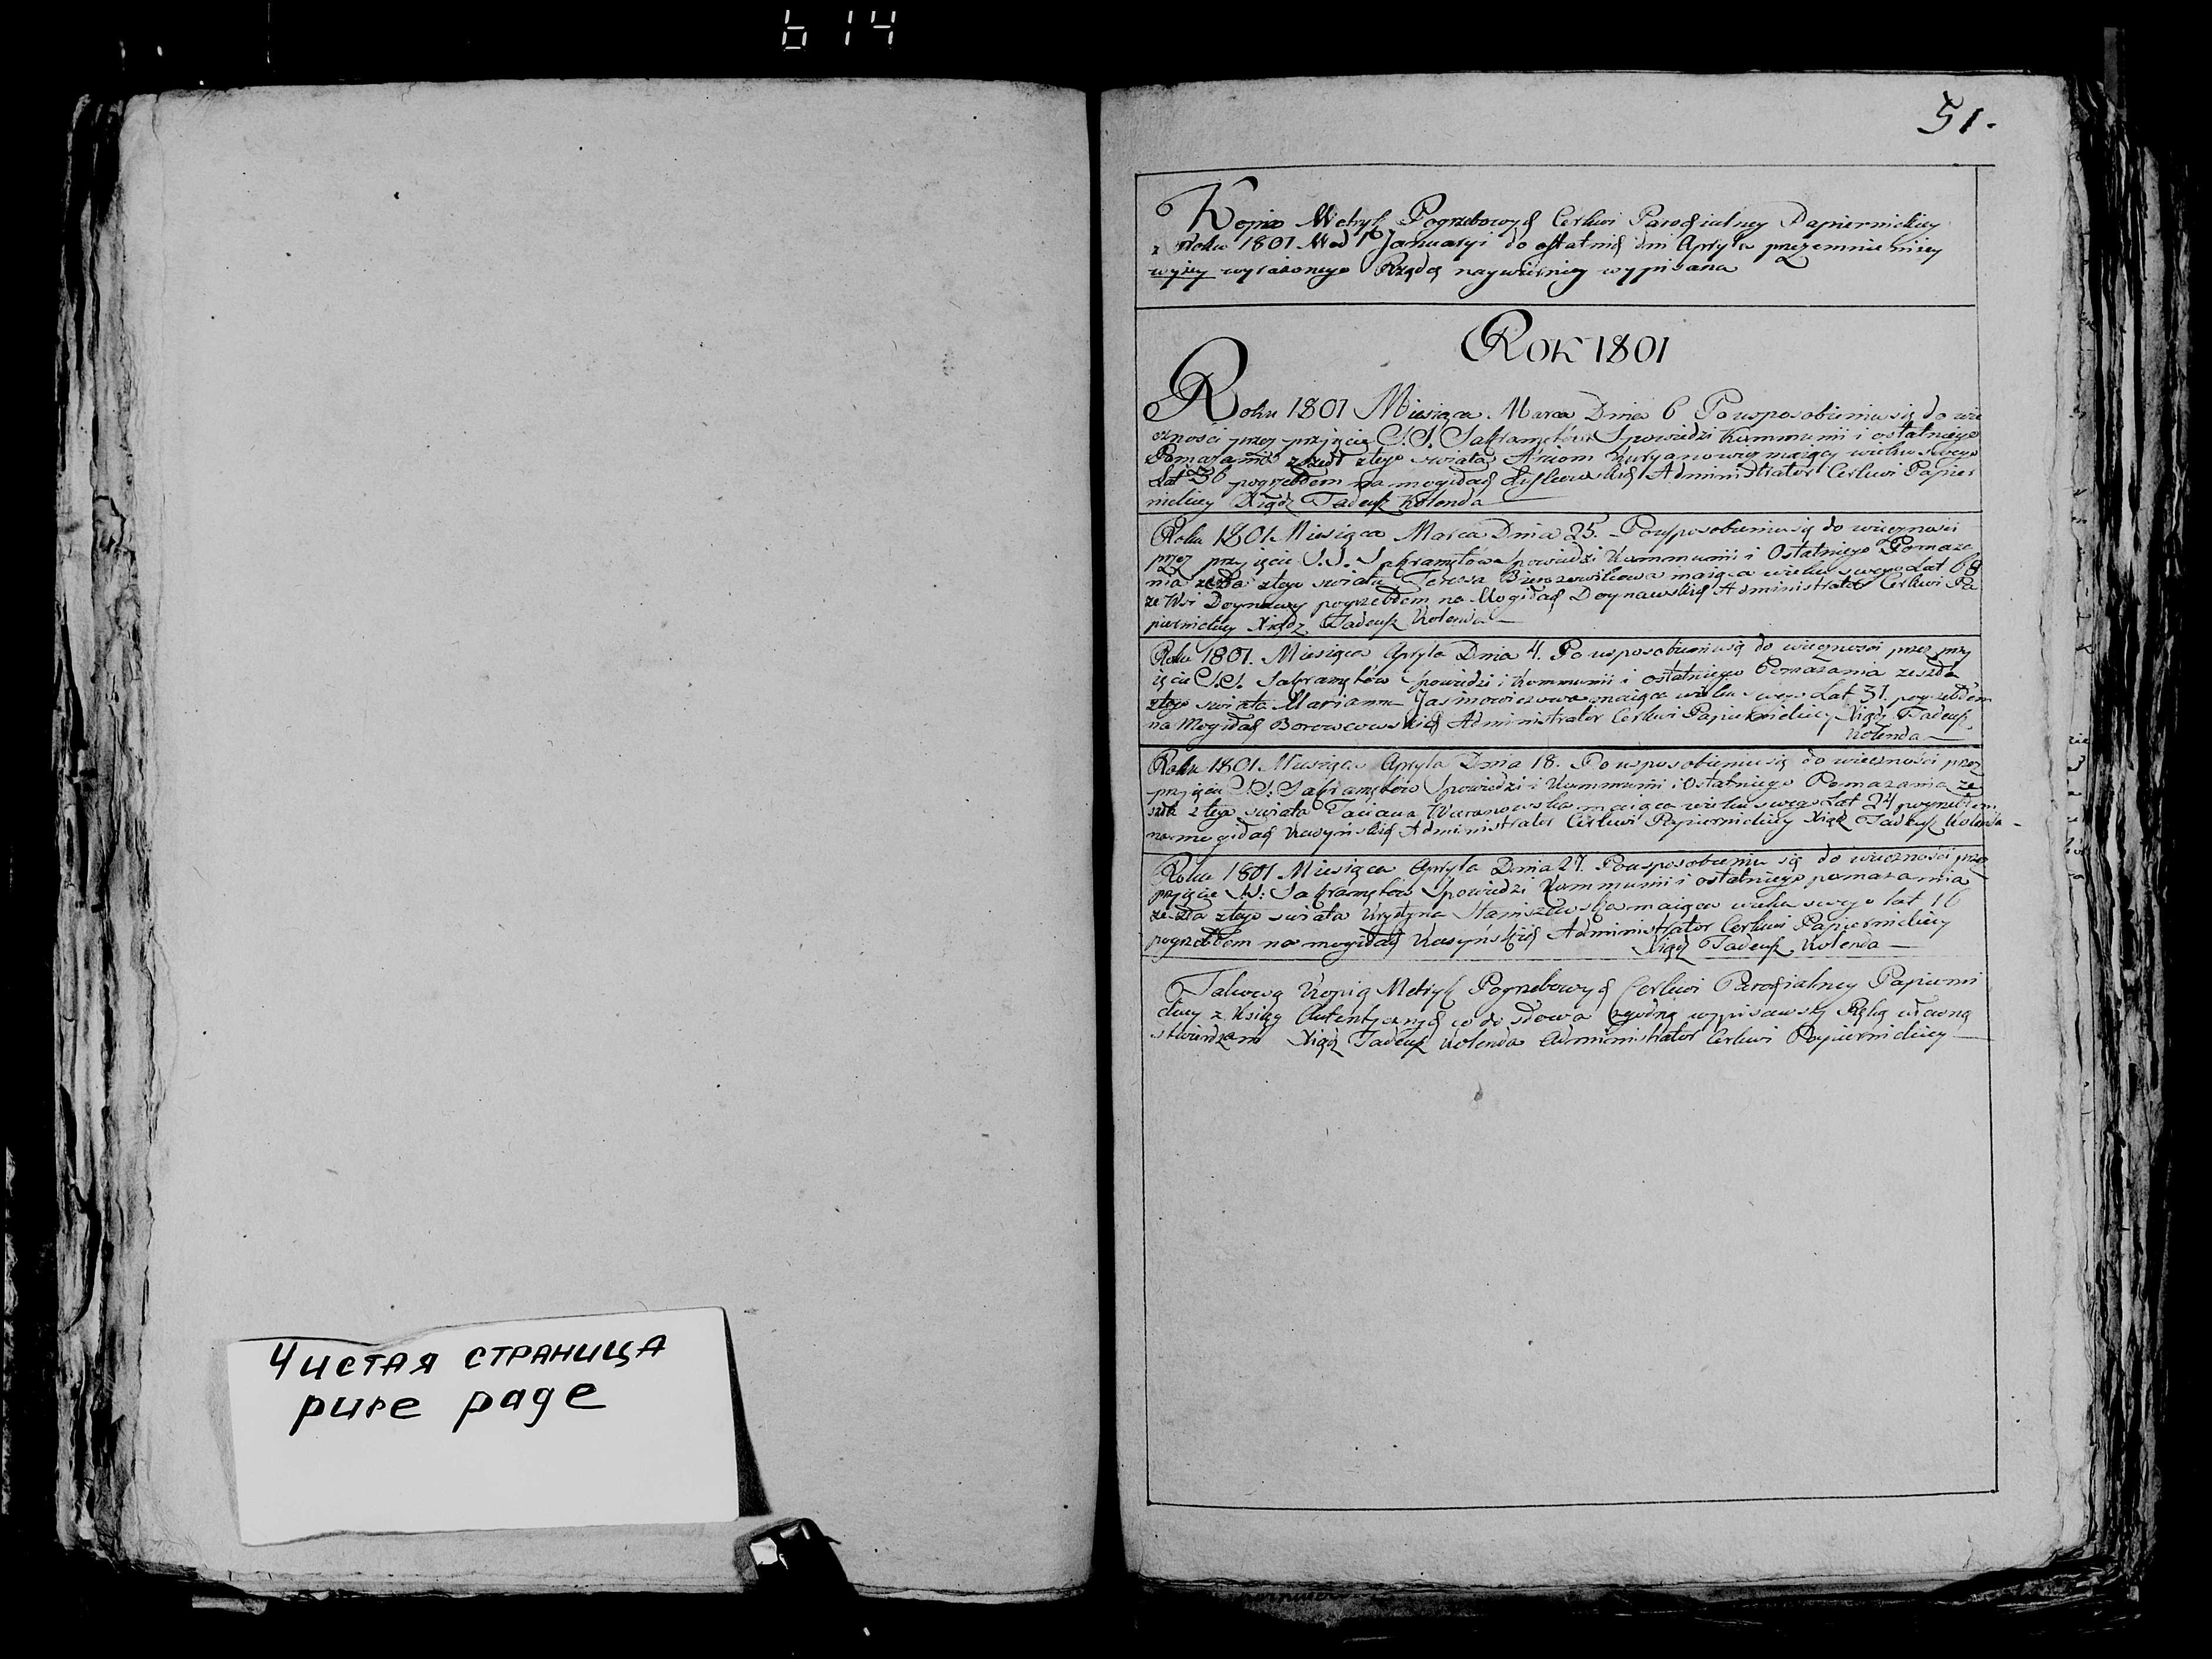 614
Чистая страница
pure page
51.
Kopia Metryk Pogrzebowych Cerkwi Parochialney Papiernickiey
z Roku 1801 od 1 Januaryi do ostatnich dni Apryla przezemnie niżey
wyżey wyrażonego Rządcę naywierniey wypisana
Rok 1801
Roku 1801 Miesiąca Marca Dnia 6 Po usposobieniu się do wie
czności przez przyjęcie S.S. Sakramętow Spowiedzi Kommunii i ostatniego
Pomazania zszedł z tego swiata Artiom Kuryanowicz maiący wieku swego
Lat 36 pogrzebłem na mogiłach Administrator Cerkwi Papier
nickiey Xiądz Tadeusz Kolenda
Roku 1801 Miesiąca Marca Dnia 25. Po usposobieniu się do wieczności
przez przyięcie S.S. Sakramętow Spowiedzi Kommunii i Ostatniego Pomaza
nia zeszła z tego swiata Teresa maiąca wieku swego Lat
ze Wsi Doynawy pogrzebłem na Mogiłach Doynawskich Administrator Cerkwi Pa
piernickiey Xiądz Tadeusz Kolenda
Roku 1801. Miesiąca Apryla Dnia 4. Po usposobieniu się do wieczności przez przy
ięcie S.S. Sakramętow Spowiedzi i Kommunii i ostatniego Pomazania zeszła
z tego swiata Marianna Jasinowiczowa maiąca wieku swego Lat 31. pogrzebłem
na Mogiłach Borowcowskich Administrator Cerkwi Papiernickiey Xiądz Tadeusz
Kolenda
Roku 1801 Miesiąca Apryla Dnia 18. Po usposobieniu się do wieczności przez
przyięcie S.S. Sakramętow Spowiedzi i Kommunii i Ostatniego Pomazania ze
szła z tego swiata Taciana Waranowska maiąca wieku swego Lat 24 pogrzebłem
na mogiłach Kasyńskich Administrator Cerkwi Papiernickiey Xiądz Tadeusz Kolenda
Roku 1801 Miesiąca Apryla Dnia 27. Po usposobieniu się do wieczności przez
przyięcie S.S. Sakramętow Spowiedzi Kommunii i ostatniego pomazania
zeszła z tego swiata Krystyna Staniszewska maiąca wieku swego lat 16
pogrzebłem na mogiłach Kasyńskich Administrator Cerkwi Papiernickiey
Xiądz Tadeusz Kolenda
Takową Kopię Metryk Pogrzebowych Cerkwi Parochialney Papierni
ckiey z Ksiąg Autentycznych co do słowa zgodną wypisawszy Ręką własną
stwierdzam Xiądz Tadeusz Kolenda Administrator Cerkwi Papiernickiey